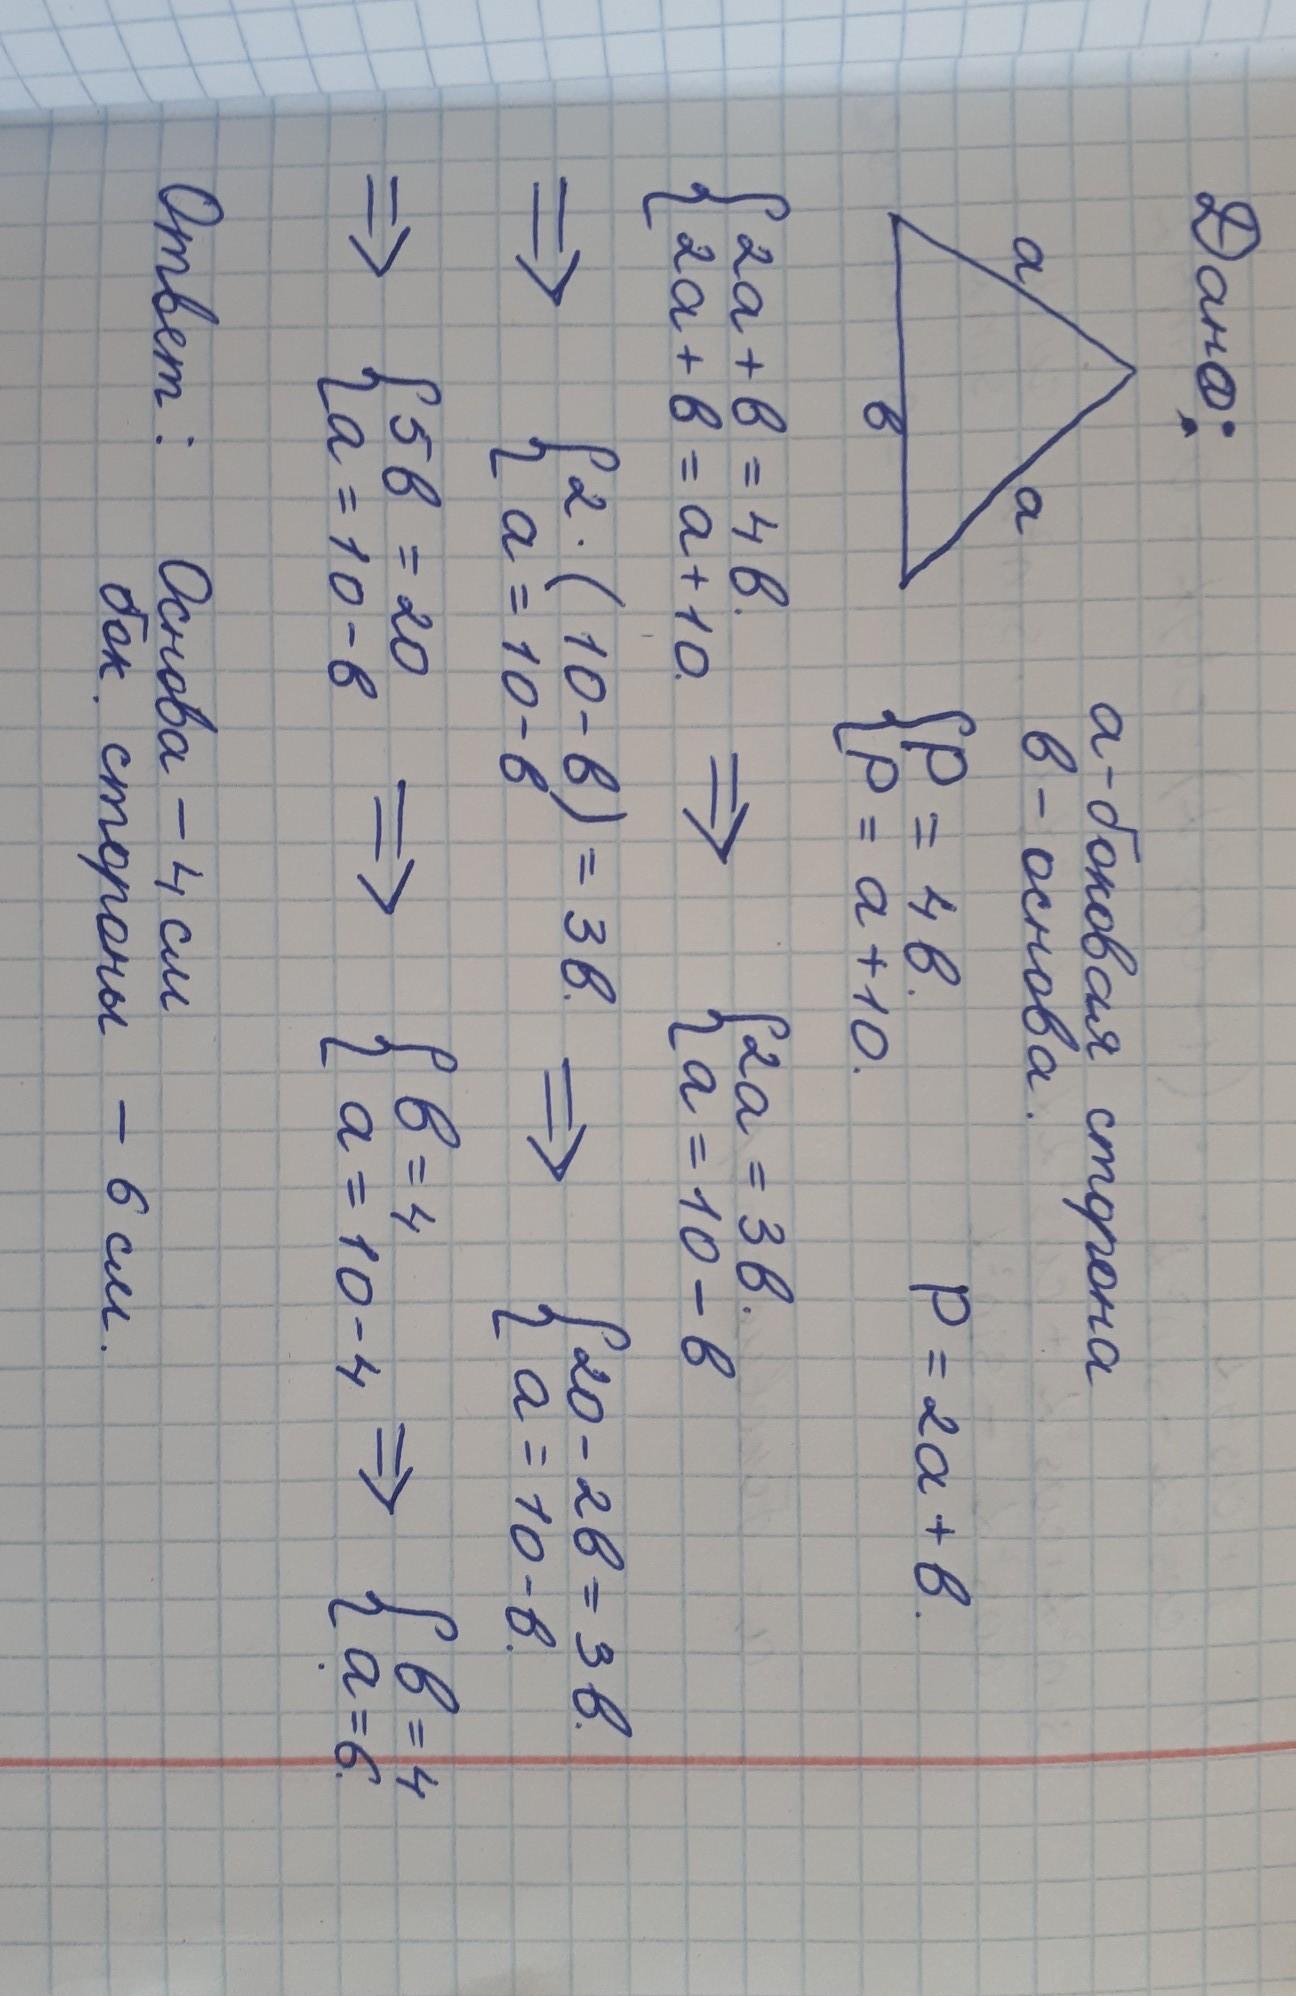 Дано:
a a
в
a - боковая сторона
в - основа.
{ P = 4в.
P = a + 10.
P = 2a + в.
{ 2a + в = 4в.
2a + в = a + 10.
⇒
{ 2a = 3в.
a = 10 - в
⇒
{ 2 · (10 - в) = 3в.
a = 10 - в
⇒
{ 20 - 2в = 3в.
a = 10 - в.
⇒
{ 5в = 20
a = 10 - в
⇒
{ в = 4
a = 10 - 4
⇒
{ в = 4
a = 6.
Ответ: Основа - 4 см
бок. стороны - 6 см.